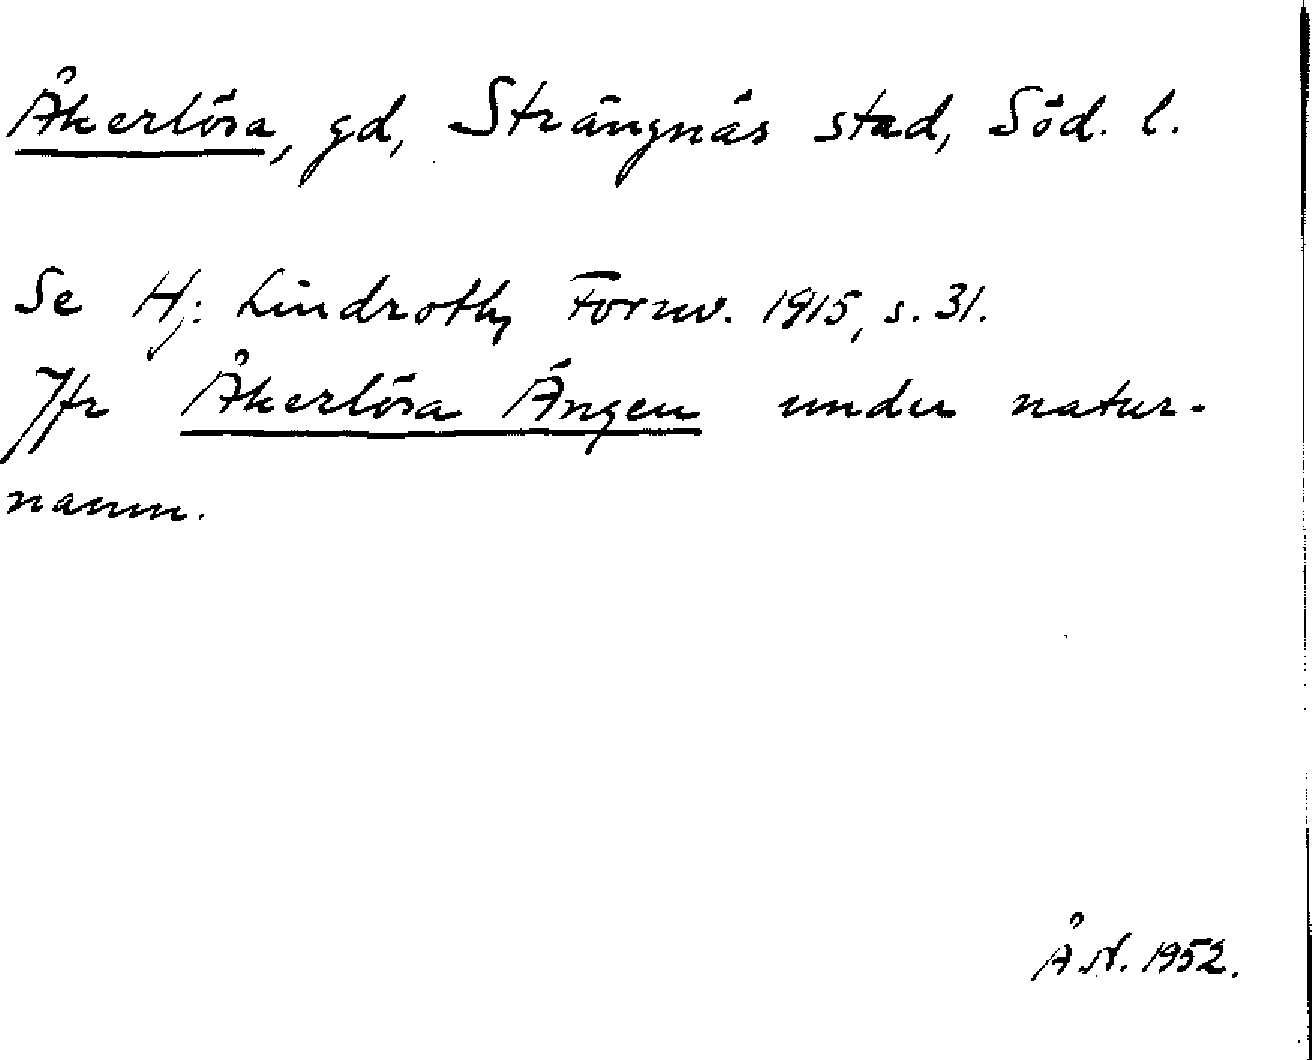 Åkerlösa, gd, Strängnäs stad, Söd. l.
Se Hj. Lindroth, Fornv. 1915, s. 31.
Jfr Åkerlösa Ängen under natur-
namn.
Å N. 1952.